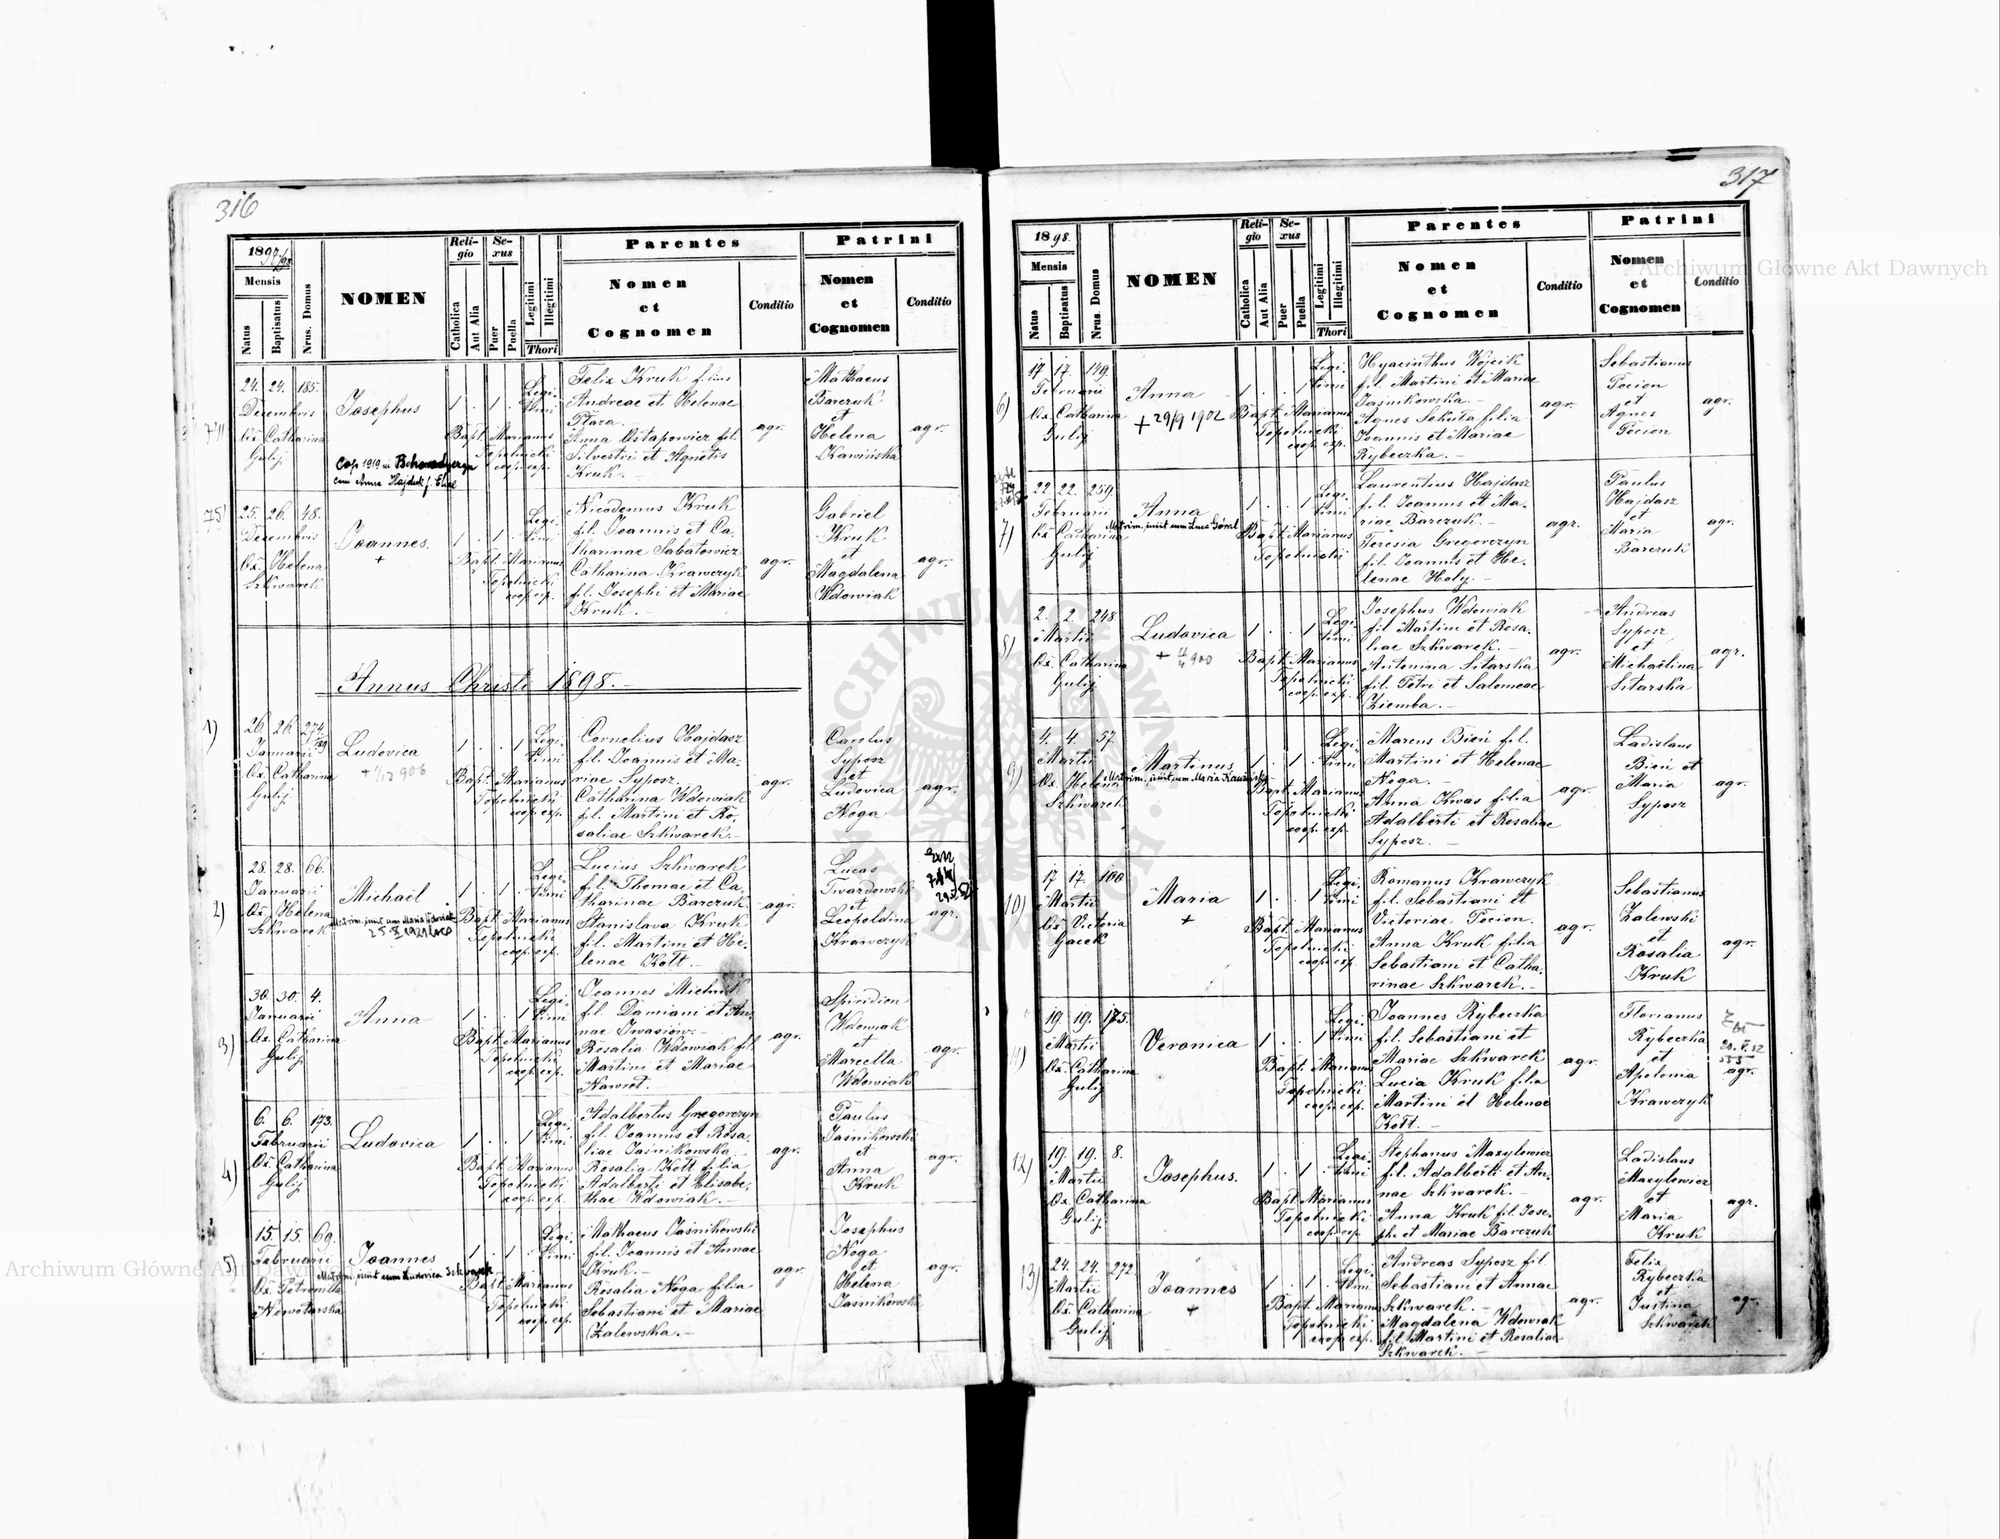 316
1897/98
Mensis
Natus
Baptisatus
Nrus. Domus
NOMEN
Reli-
gio
Catholica
Aut Alia
Se-
xus
Puer
Puella
Legitimi
Illegitimi
Thori
Parentes
Nomen
et
Cognomen
Conditio
Patrini
Nomen
et
Cognomen
Conditio
24. 24. 185.
Decembris
Ox. Catharina
Gulij
Josephus
Cop. 1919 in
cum Anna Hajduk f.
1 . 1 . Legi-
timi
Bapt. Marianus
Topolnicki
coop. exp.
Felix Kruk filius
Andreae et Helenae
Ptaza.
Anna Ostapowicz fil.
Silvestri et Agnetis
Kruk. -
agr.
Mathaeus
Barczuk
et
Helena
Kawińska
agr.
75
25. 26. 48.
Decembris
Ox. Helena
Szkwarek
Joannes.
+
1 . 1 . Legi-
timi
Bapt. Marianus
Topolnicki
coop. exp.
Nicodemus Kruk
fil. Joannis et Ca-
tharinae Sabatowicz
Catharina Krawczyk
fil. Josephi et Mariae
Kruk. -
agr.
Gabriel
Kruk
et
Magdalena
Wdowiak
agr.
Annus Christi 1898. -
1)
26. 26. 274.
Januarii
Ox. Catharina
Gulij
Ludovica
1 . . 1 Legi-
timi
Bapt. Marianus
Topolnicki
coop. exp.
Cornelius Hajdasz
fil. Joannis et Ma-
riae Syposz.
Catharina Wdowiak
fil. Martini et Ro-
saliae Szkwarek. -
agr.
Carolus
Syposz
et
Ludovica
Noga
agr.
2)
28. 28. 66.
Januarii
Ox. Helena
Szkwarek
Michael
1 . 1 . Legi-
timi
Bapt. Marianus
Topolnicki
coop. exp.
Lucius Szkwarek
fil. Thomae et Ca-
tharinae Barczuk.
Stanislava Kruk
fil. Martini et He-
lenae Kott. -
agr.
Lucas
Twardowski
et
Leopoldina
Krawczyk
agr.
3)
30. 30. 4.
Januarii
Ox. Catharina
Gulij
Anna
1 . . 1 Legi-
timi
Bapt. Marianus
Topolnicki
coop. exp.
Joannes Mielnik
fil. Damiani et An-
nae Iwasiów. -
Rosalia Wdowiak fil.
Martini et Mariae
Nawrot. -
agr.
Spiridion
Wdowiak
et
Marcella
Wdowiak
agr.
4)
6. 6. 173.
Februarii
Ox. Catharina
Gulij
Ludovica
1 . . 1 Legi-
timi
Bapt. Marianus
Topolnicki
coop. exp.
Adalbertus Gregorczyn
fil. Joannis et Rosa-
liae Jaśnikowska. -
Rosalia Kott filia
Adalberti et Elisabe-
thae Wdowiak. -
agr.
Paulus
Jaśnikowski
et
Anna
Kruk
agr.
5)
15. 15. 69.
Februarii
Ox. Petronella
Nowotarska
Joannes
Matrim. iniit cum Ludovica Szkwarek
1 . 1 . Legi-
timi
Bapt. Marianus
Topolnicki
coop. exp.
Mathaeus Jaśnikowski
fil. Joannis et Annae
Kruk. -
Rosalia Noga filia
Sebastiani et Mariae
Zalewska. -
agr.
Josephus
Noga
et
Helena
Jaśnikowska
agr.
317
1898.
Mensis
Natus
Baptisatus
Nrus. Domus
NOMEN
Reli-
gio
Catholica
Aut Alia
Se-
xus
Puer
Puella
Legitimi
Illegitimi
Thori
Parentes
Nomen
et
Cognomen
Conditio
Patrini
Nomen
et
Cognomen
Conditio
6)
17. 17. 149.
Februarii
Ox. Catharina
Gulij
Anna
+ 29/9 1902
1 . . 1 Legi-
timi
Bapt. Marianus
Topolnicki
coop. exp.
Hyacinthus Wójcik
fil. Martini et Mariae
Jaśnikowska. -
Agnes Sekuta filia
Joannis et Mariae
Rybeczka. -
agr.
Sebastianus
Pocion
et
Agnes
Pocion
agr.
7)
22. 22. 259.
Februarii
Ox. Catharina
Gulij
Anna
Matrim. iniit cum Luca Góral
1 . . 1 Legi-
timi
Bapt. Marianus
Topolnicki
Laurentius Hajdasz
fil. Joannis et Ma-
riae Barczuk. -
Teresia Gregorczyn
fil. Joannis et He-
lenae Holy. -
agr.
Paulus
Hajdasz
et
Maria
Barczuk
agr.
8)
2. 2. 248.
Martii
Ox. Catharina
Gulij
Ludovica
+ 4/4 900
1 . . 1 Legi-
timi
Bapt. Marianus
Topolnicki
coop. exp.
Josephus Wdowiak
fil. Martini et Rosa-
liae Szkwarek. -
Antonina Sitarska
fil. Petri et Salomeae
Ziemba. -
agr.
Andreas
Syposz
et
Michaëlina
Sitarska
agr.
9)
4. 4. 57.
Martii
Ox. Helena
Szkwarek
Martinus
1 . 1 . Legi-
timi
Bapt. Marianus
Topolnicki
coop. exp.
Marcus Bień fil.
Martini et Helenae
Noga. -
Anna Kwas filia
Adalberti et Rosaliae
Syposz. -
agr.
Ladislaus
Bień et
Maria
Syposz
agr.
10)
17. 17. 100
Martii
Ox. Victoria
Gacek
Maria
+
1 . . 1 Legi-
timi
Bapt. Marianus
Topolnicki
coop. exp.
Romanus Krawczyk
fil. Sebastiani et
Victoriae Pocion.
Anna Kruk filia
Sebastiani et Catha-
rinae Szkwarek. -
agr.
Sebastianus
Zalewski
et
Rosalia
Kruk
agr.
11)
19. 19. 175.
Martii
Ox. Catharina
Gulij
Veronica
1 . . 1 Legi-
timi
Bapt. Marianus
Topolnicki
coop. exp.
Joannes Rybeczka
fil. Sebastiani et
Mariae Szkwarek
Lucia Kruk filia
Martini et Helenae
Kott. -
agr.
Florianus
Rybeczka
et
Apolonia
Krawczyk
agr.
12)
19. 19. 8.
Martii
Ox. Catharina
Gulij
Josephus.
1 . 1 . Legi-
timi
Bapt. Marianus
Topolnicki
coop. exp.
Stephanus Mazylewicz
fil. Adalberti et An-
nae Szkwarek. -
Anna Kruk fil. Jose-
phi et Mariae Barczuk
agr.
Ladislaus
Mazylewicz
et
Maria
Kruk
agr.
13)
24. 24. 272.
Martii
Ox. Catharina
Gulij
Joannes
+
1 . 1 . Legi-
timi
Bapt. Marianus
Topolnicki
coop. exp.
Andreas Syposz fil.
Sebastiani et Annae
Szkwarek. -
Magdalena Wdowiak
fil. Martini et Rosaliae
Szkwarek. -
agr.
Felix
Rybeczka
et
Justina
Szkwarek
agr.
Archiwum Główne Akt Dawnych
Archiwum Główne Akt Dawnych